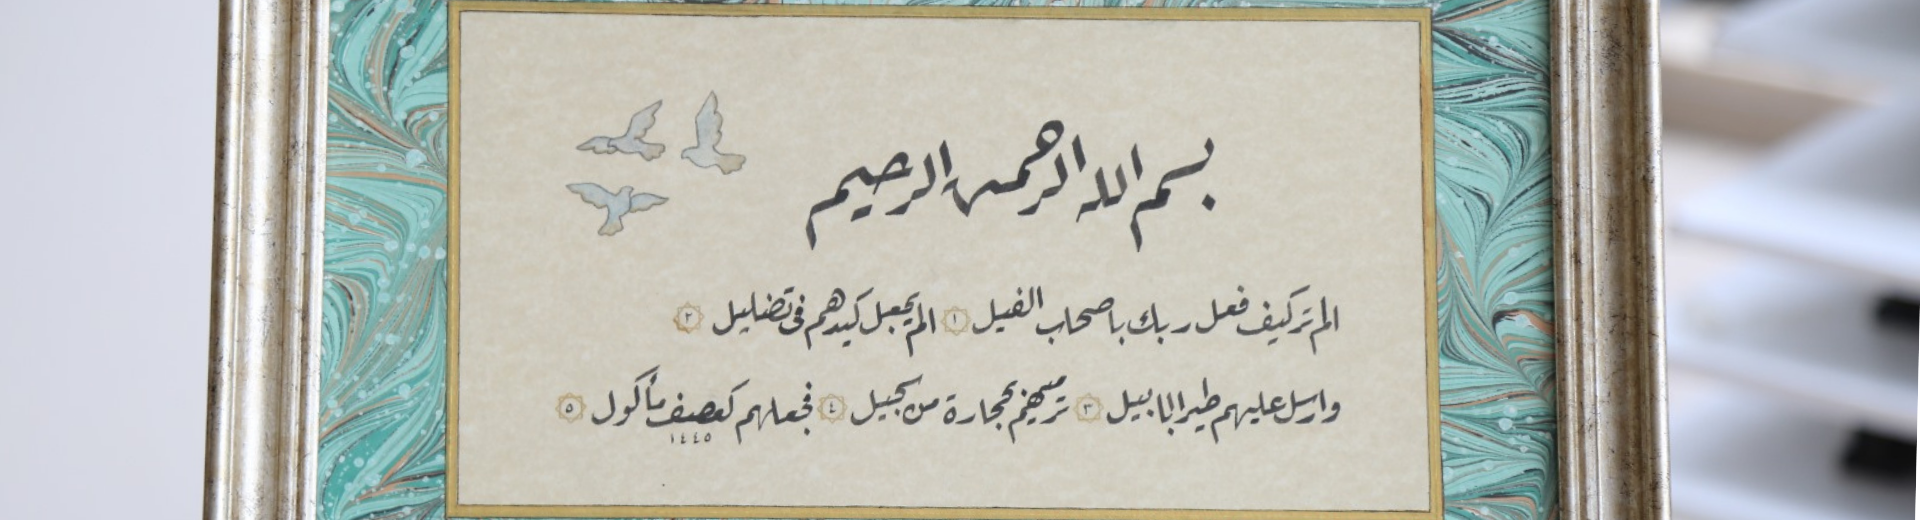 بسم الله الرحمن الرحيم
الم تر كيف فعل ربك باصحاب الفيل ١ الم يجعل كيدهم فى تضليل ٢
وارسل عليهم طيرا ابابيل ٣ ترميهم بحجارة من سجيل ٤ فجعلهم كعصف مأكول ٥
١٤٤٥